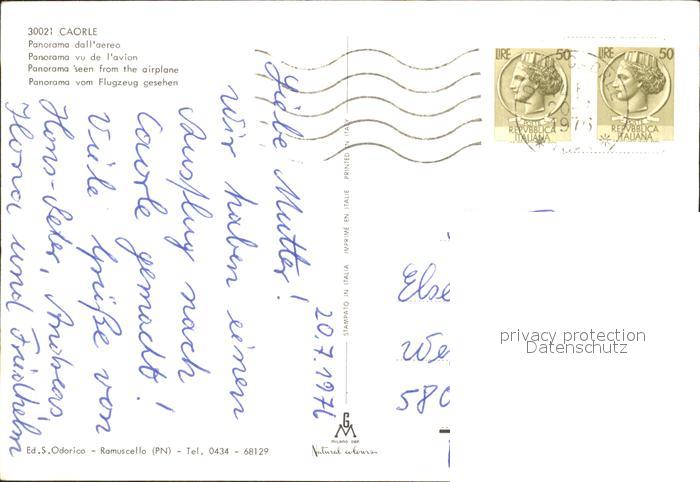 30021 CAORLE
Panorama dall'aereo
Panorama vu de l'avion
Panorama seen from the airplane
Panorama vom Flugzeug gesehen
LIRE 50
REPVBBLICA
ITALIANA
LIRE 50
REPVBBLICA
ITALIANA
20.7.1976
Liebe Mutter!
Wir haben einen
Ausflug nach
Caorle gemacht!
Viele Grüße von
Hans-Peter, Andreas,
Ilona und Friedhelm
STAMPATO IN ITALIA IMPRIMÉ EN ITALIE PRINTED IN ITALY
Else
We
580
privacy protection
Datenschutz
G
M
MILANO DEP.
Natural colours
Ed.S.Odorico - Ramuscello (PN) - Tel. 0434 - 68129